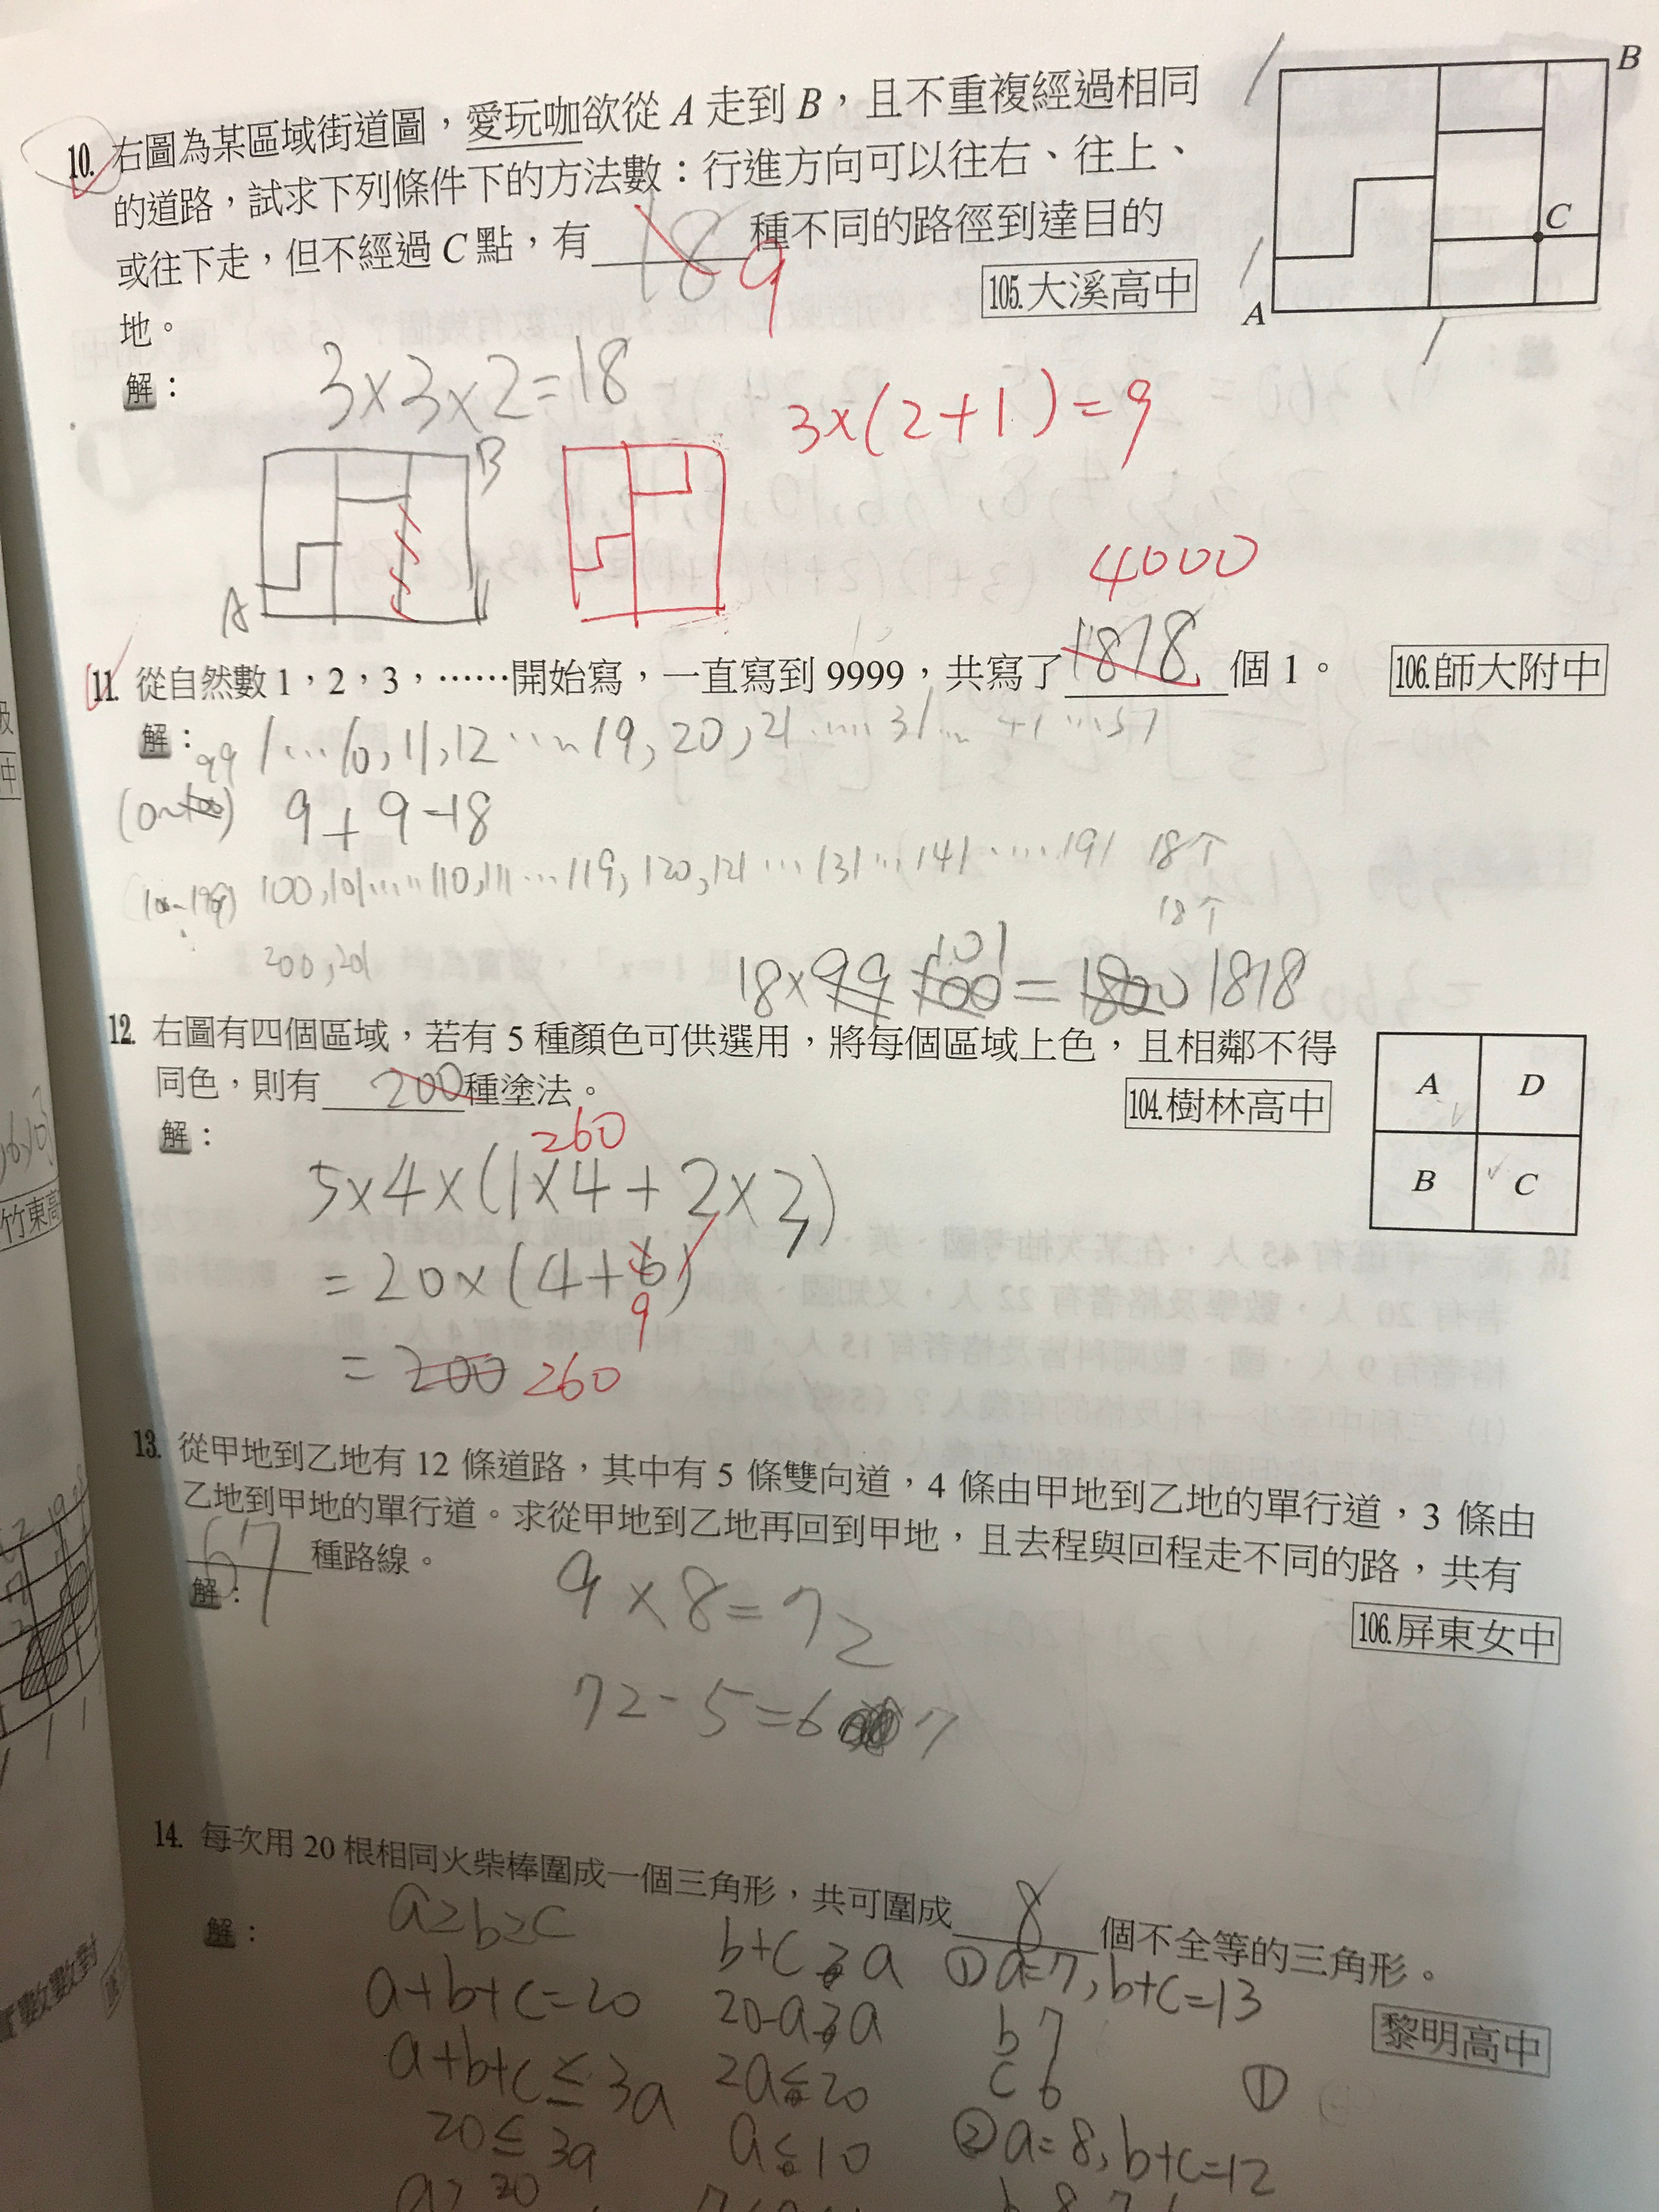 10. 右圖為某區域街道圖，愛玩咖欲從 A 走到 B，且不重複經過相同
的道路，試求下列條件下的方法數：行進方向可以往右、往上、
或往下走，但不經過 C 點，有 18 9 種不同的路徑到達目的
地。
105.大溪高中
B
C
A
解：
3×3×2=18
3×(2+1)=9
B
A
4000
11. 從自然數 1，2，3，……開始寫，一直寫到 9999，共寫了 1818 個 1。
106.師大附中
解：
1…10,11,12…19,20,21…31…41…51
9+9=18
100,101……110,111…119,120,121…131…141……191 18个
18个
200,201
18×99 100 101=1800 1818
12. 右圖有四個區域，若有 5 種顏色可供選用，將每個區域上色，且相鄰不得
同色，則有 200 種塗法。
104.樹林高中
A D
B C
解：
260
5×4×(1×4+2×3)
=20×(4+6)
9
=200 260
13. 從甲地到乙地有 12 條道路，其中有 5 條雙向道，4 條由甲地到乙地的單行道，3 條由
乙地到甲地的單行道。求從甲地到乙地再回到甲地，且去程與回程走不同的路，共有
67 種路線。
106.屏東女中
解：
9×8=72
72-5=6 7
14. 每次用 20 根相同火柴棒圍成一個三角形，共可圍成 8 個不全等的三角形。
黎明高中
解：
a≥b≥c
a+b+c=20
a+b+c≤3a
20≤3a
b+c≥a
20-a≥a
2a≤20
a≤10
①a=7,b+c=13
b 7
c 6
①
②a=8,b+c=12
竹東高